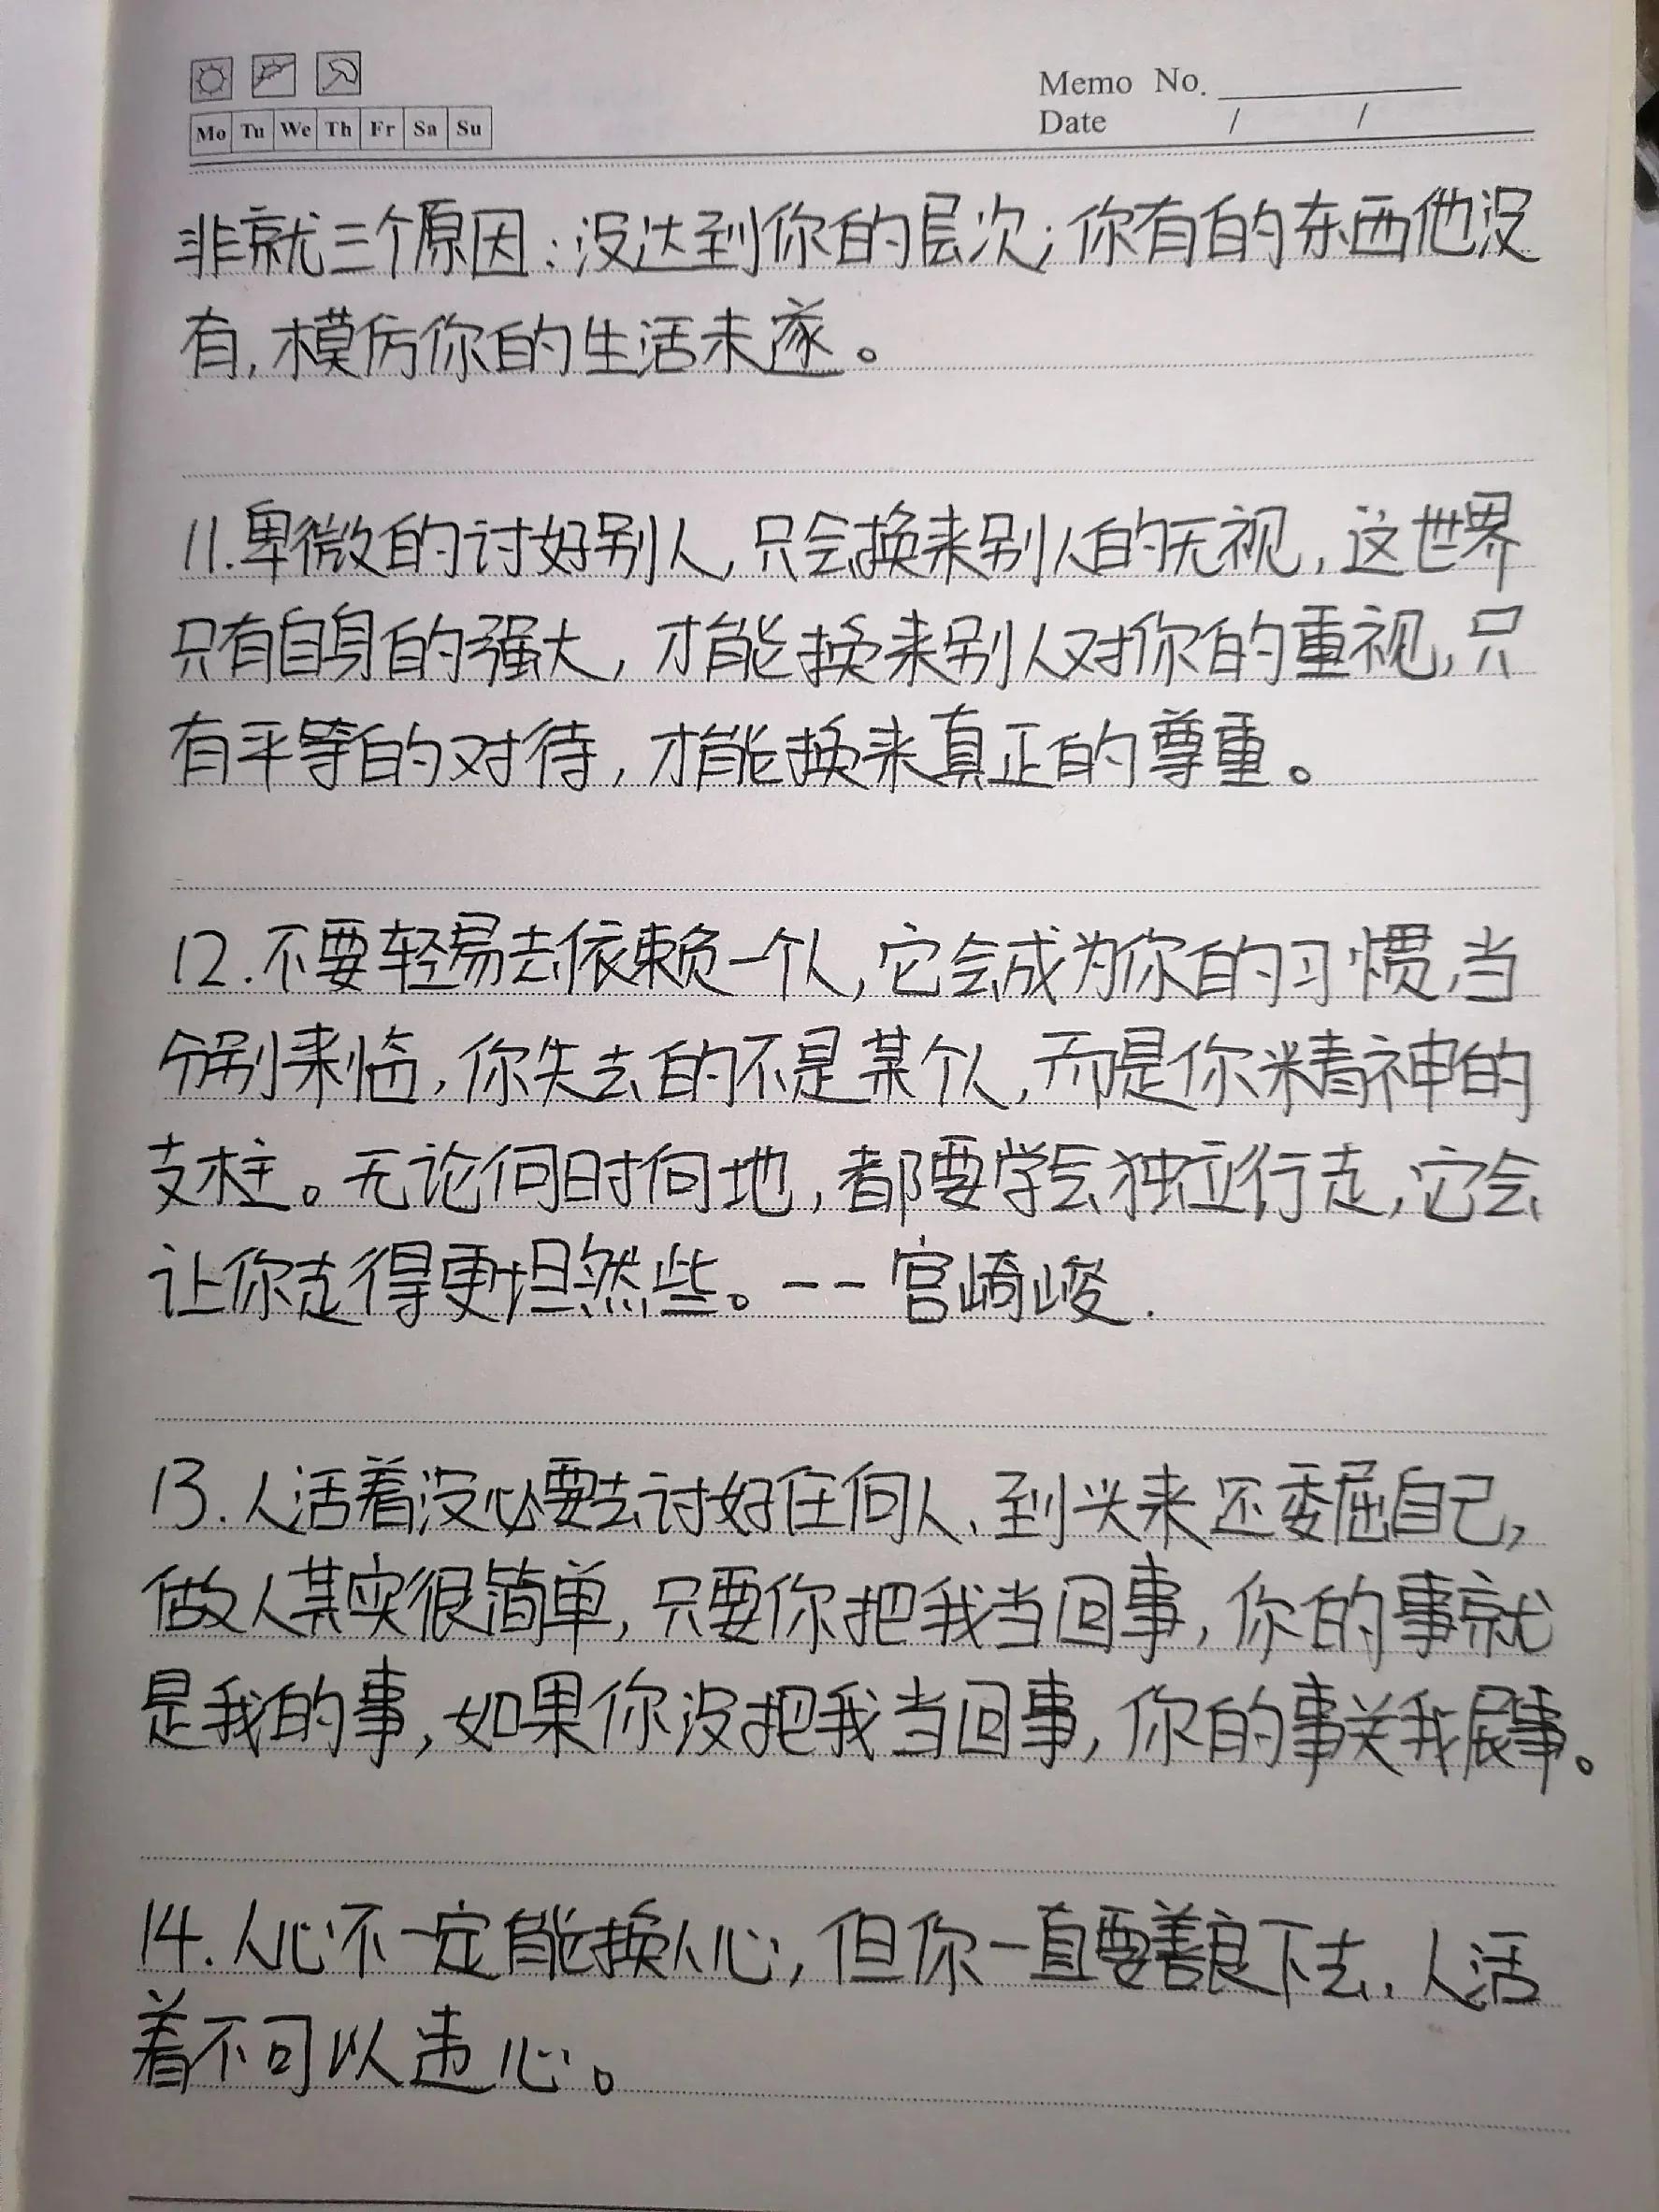 Memo No.
Mo Tu We Th Fr Sa Su
Date / /
非就三个原因：没达到你的层次；你有的东西他没
有，模仿你的生活未遂。
11.卑微的讨好别人，只会换来别人的无视，这世界
只有自身的强大，才能换来别人对你的重视，只
有平等的对待，才能换来真正的尊重。
12.不要轻易去依赖一个人，它会成为你的习惯，当
分别来临，你失去的不是某个人，而是你精神的
支柱。无论何时何地，都要学会独立行走，它会
让你走得更坦然些。--宫崎峻.
13.人活着没必要去讨好任何人、到头来还委屈自己，
做人其实很简单，只要你把我当回事，你的事就
是我的事，如果你没把我当回事，你的事关我屁事。
14.人心不一定能换人心，但你一直要善良下去，人活
着不可以违心。